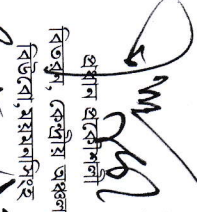 প্রধান প্রকৌশলী
বিতরণ, কেন্দ্রীয় অঞ্চল
বিউবো, ময়মনসিংহ